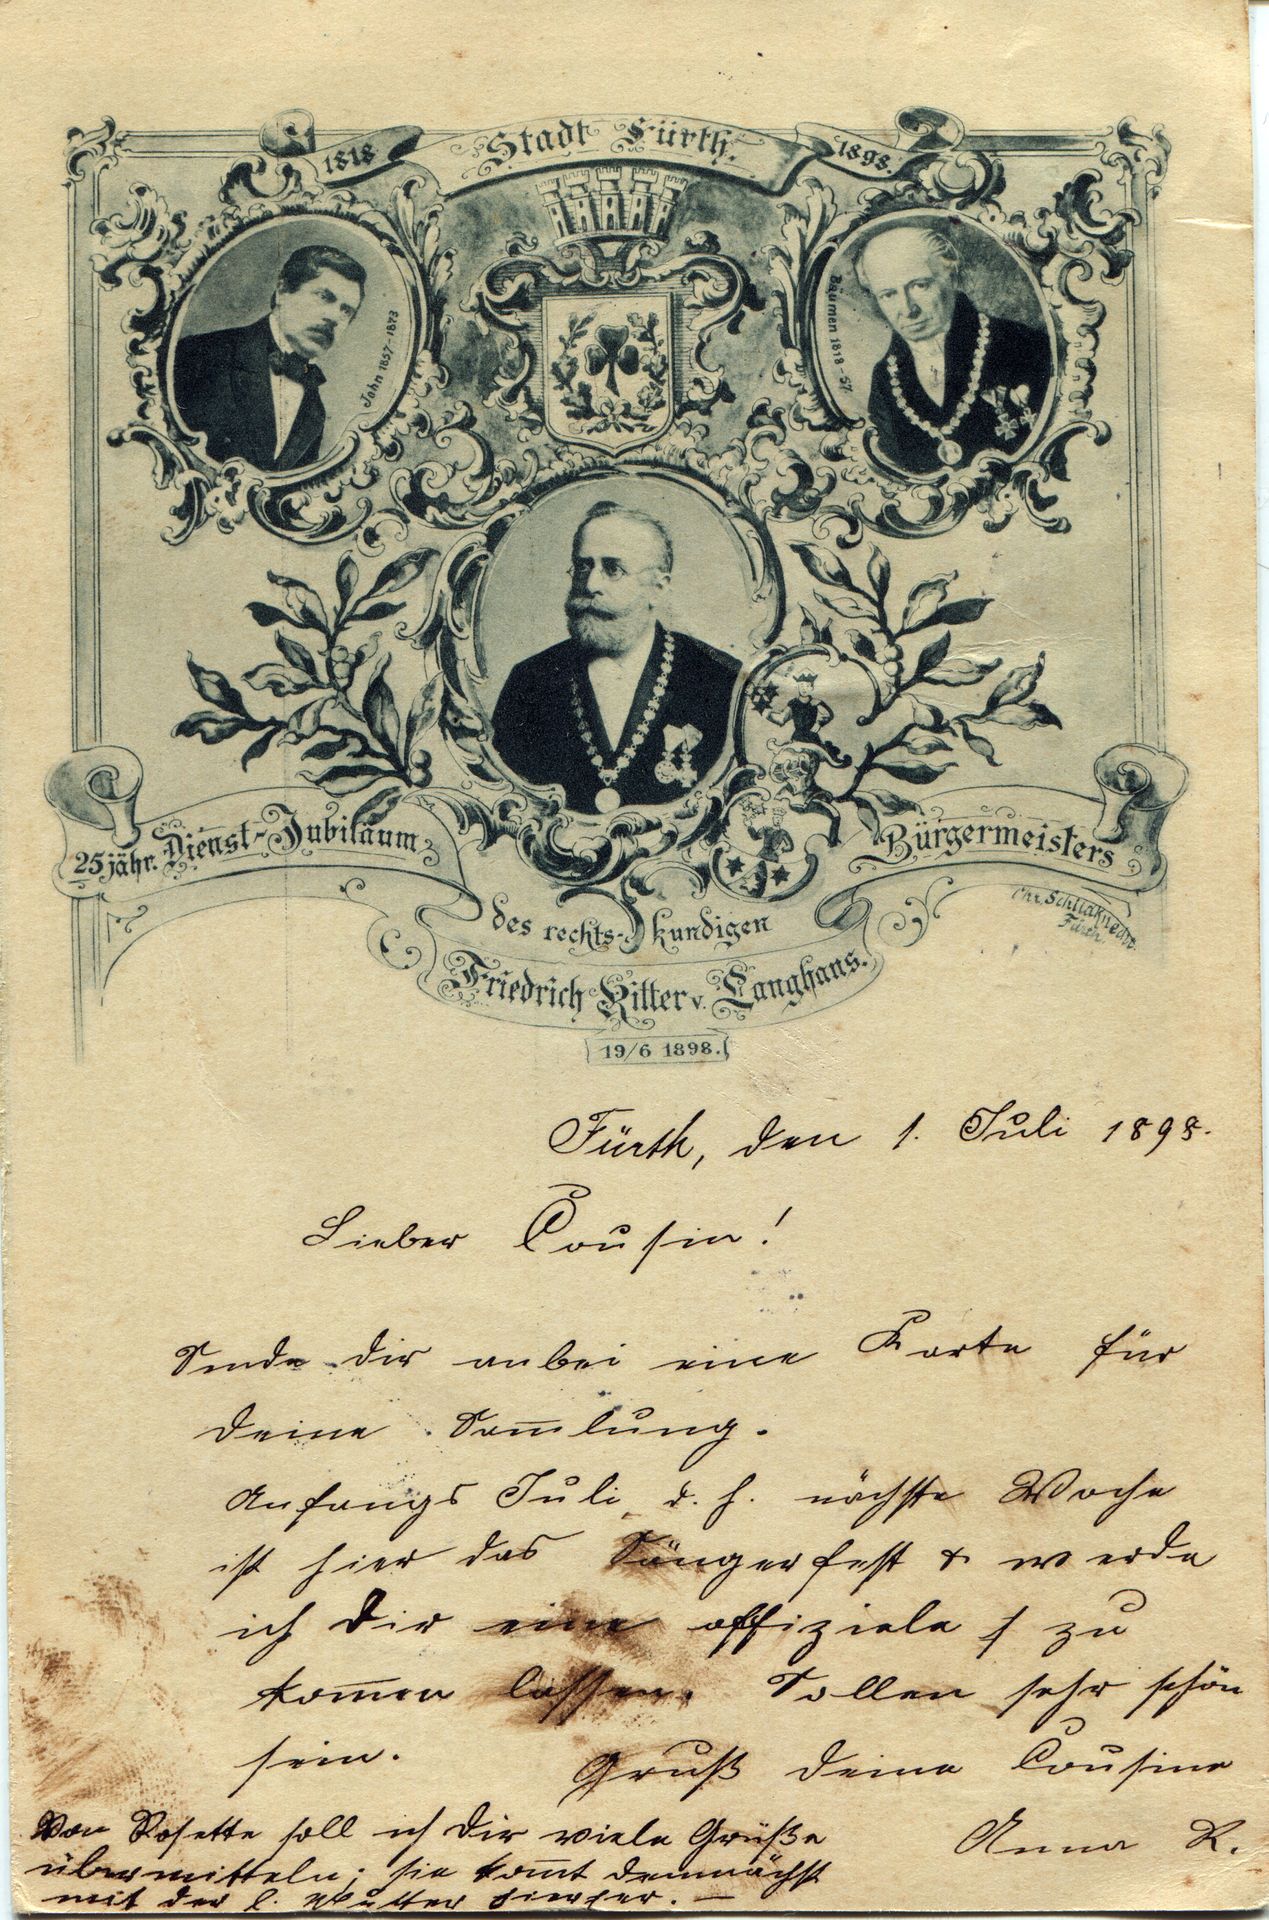 1818 Stadt Fürth. 1898.
John 1857-1873
Bäumen 1818-57
25jähr. Dienst-Jubiläum
Bürgermeisters
des rechts- kundigen
Friedrich Ritter v. Langhans.
Chr. Schildknecht
Fürth.
19/6 1898.
Fürth, den 1. Juli 1898.
Lieber Cousin!
Sende dir anbei eine Karte für
deine Sam̅lung.
Anfangs Juli, d. h. nächste Woche
ist hier das Sängerfest & werde
ich Dir eine offiziele zu
kom̅en lassen. Sollen sehr schön
sein.
Gruß deine Cousine
Anna R.
Von Rosette soll ich Dir viele Grüße
übermitteln; sie kom̅t demnächst
mit der l. Mutter hierher. —